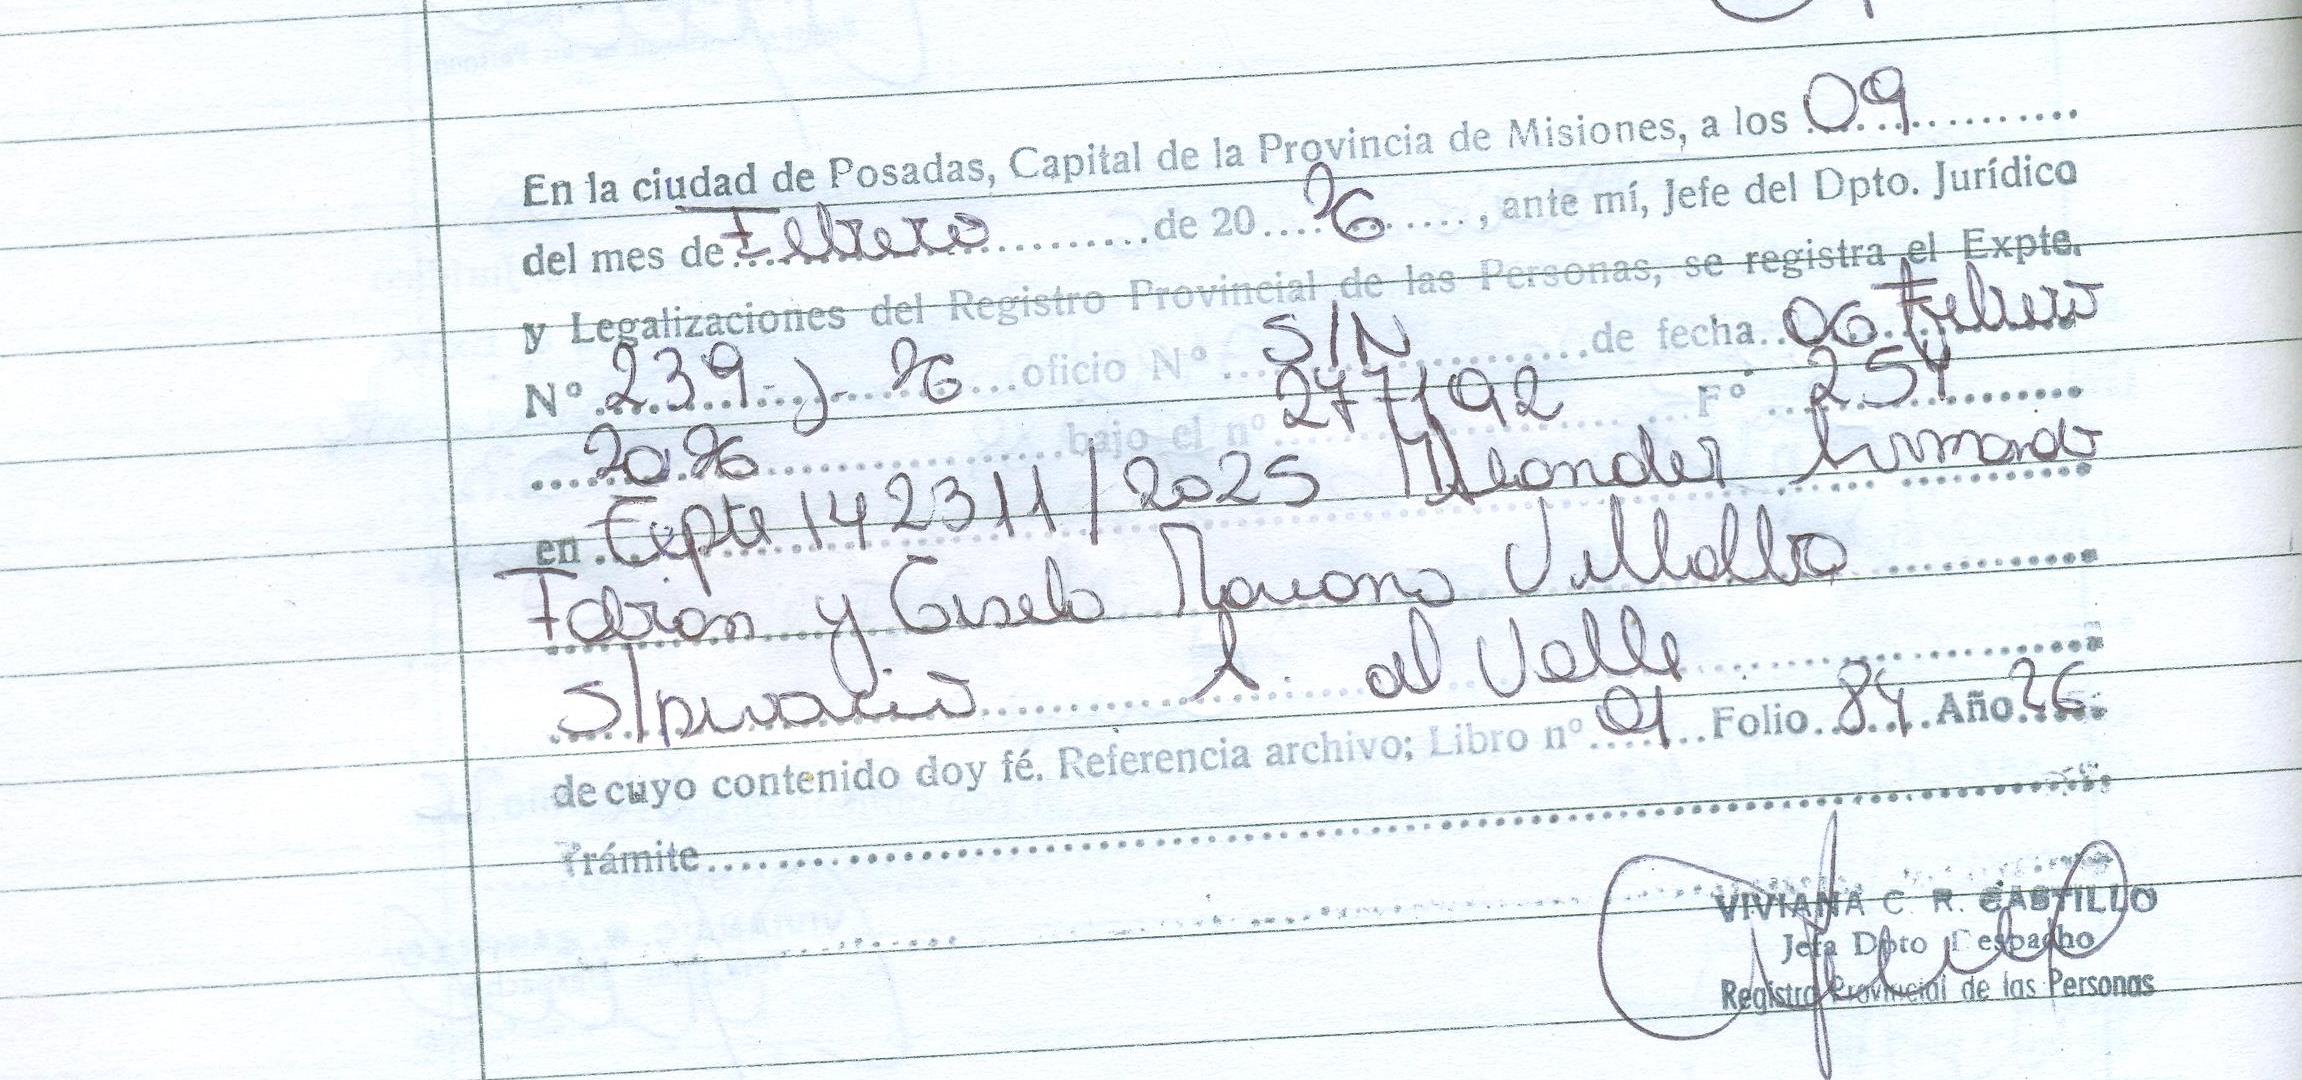 En la ciudad de Posadas, Capital de la Provincia de Misiones, a los 09
del mes de Febrero de 20 26, ante mí, Jefe del Dpto. Jurídico
y Legalizaciones del Registro Provincial de las Personas, se registra el Expte.
Nº 239-J-26 oficio Nº S/N de fecha 06 Febrero
2026 bajo el nº 277/92 Fº 254
en Expte 142311/2025 Armando
Fabian y Gisela Mariana Villalba
s/ divorcio L. al Valle
de cuyo contenido doy fé. Referencia archivo; Libro nº 01 Folio 84 Año 26
Trámite
VIVIANA C. R. CASTILLO
Jefa Dpto Despacho
Registro Provincial de las Personas